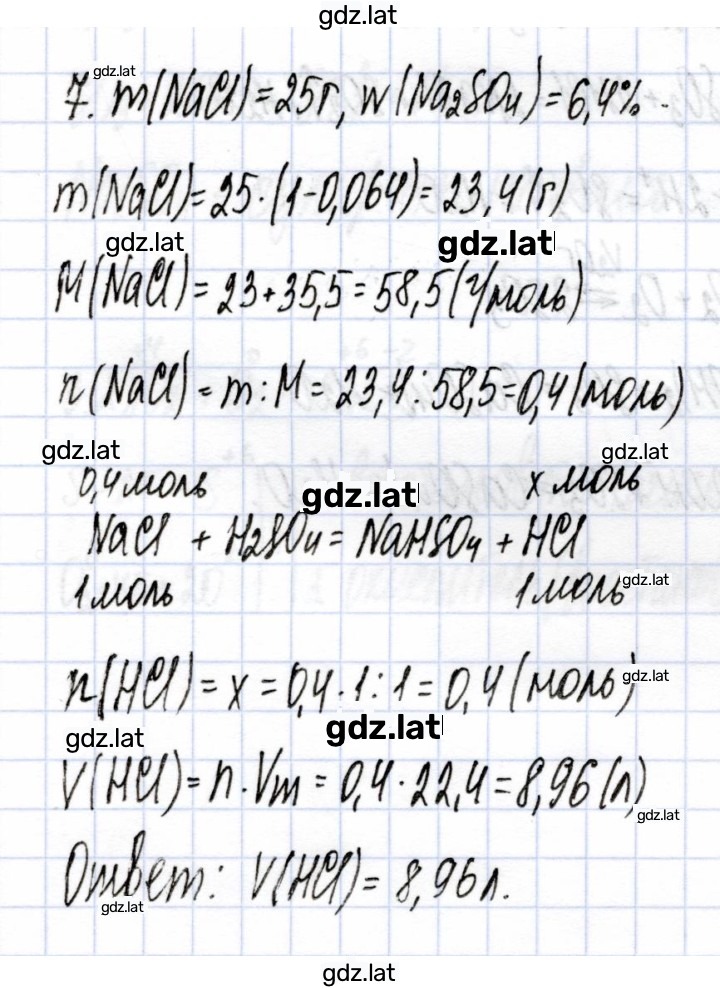 gdz.lat
gdz.lat
7. m(NaCl)=25г, w(Na₂SO₄)=6,4%
m(NaCl)=25·(1-0,064)=23,4(г)
gdz.lat gdz.lat
M(NaCl)=23+35,5=58,5(г/моль)
n(NaCl)=m:M=23,4:58,5=0,4(моль)
gdz.lat gdz.lat
0,4 моль gdz.lat x моль
NaCl + H₂SO₄ = NaHSO₄ + HCl
1 моль 1 моль gdz.lat
n(HCl)=x=0,4·1:1=0,4(моль) gdz.lat
gdz.lat gdz.lat
V(HCl)=n·Vm=0,4·22,4=8,96(л)
gdz.lat
Ответ: V(HCl)=8,96л.
gdz.lat
gdz.lat